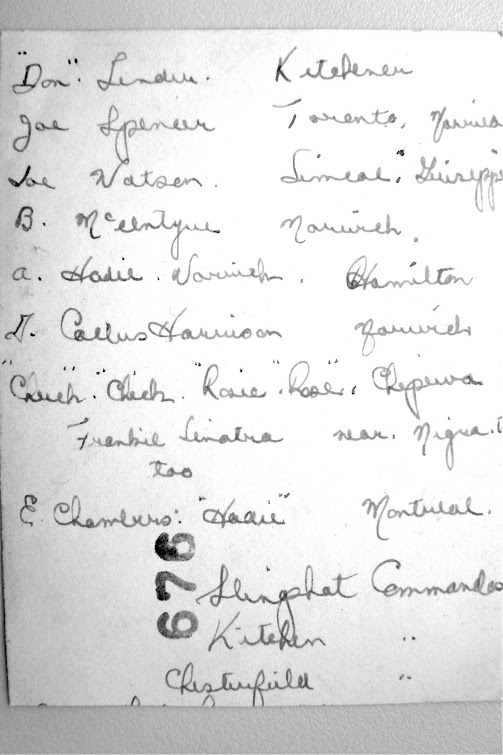 "Don". Linder. Kitchener
Joe Spencer Toronto, Norwich
Joe Watson. Simcoe, "Giusepp
B. McEntyre Norwich.
A. Hadie. Norwich. Hamilton
T. Callus Harrison Norwich
"Chuch". "Chick. "Rosie". "Rose", Chipewa
Frankie Sinatra near. Nigra.
too
E. Chambers: "Hadie" Montreal.
676
Slingshot Commandos
Kitchen "
Chesterfield "